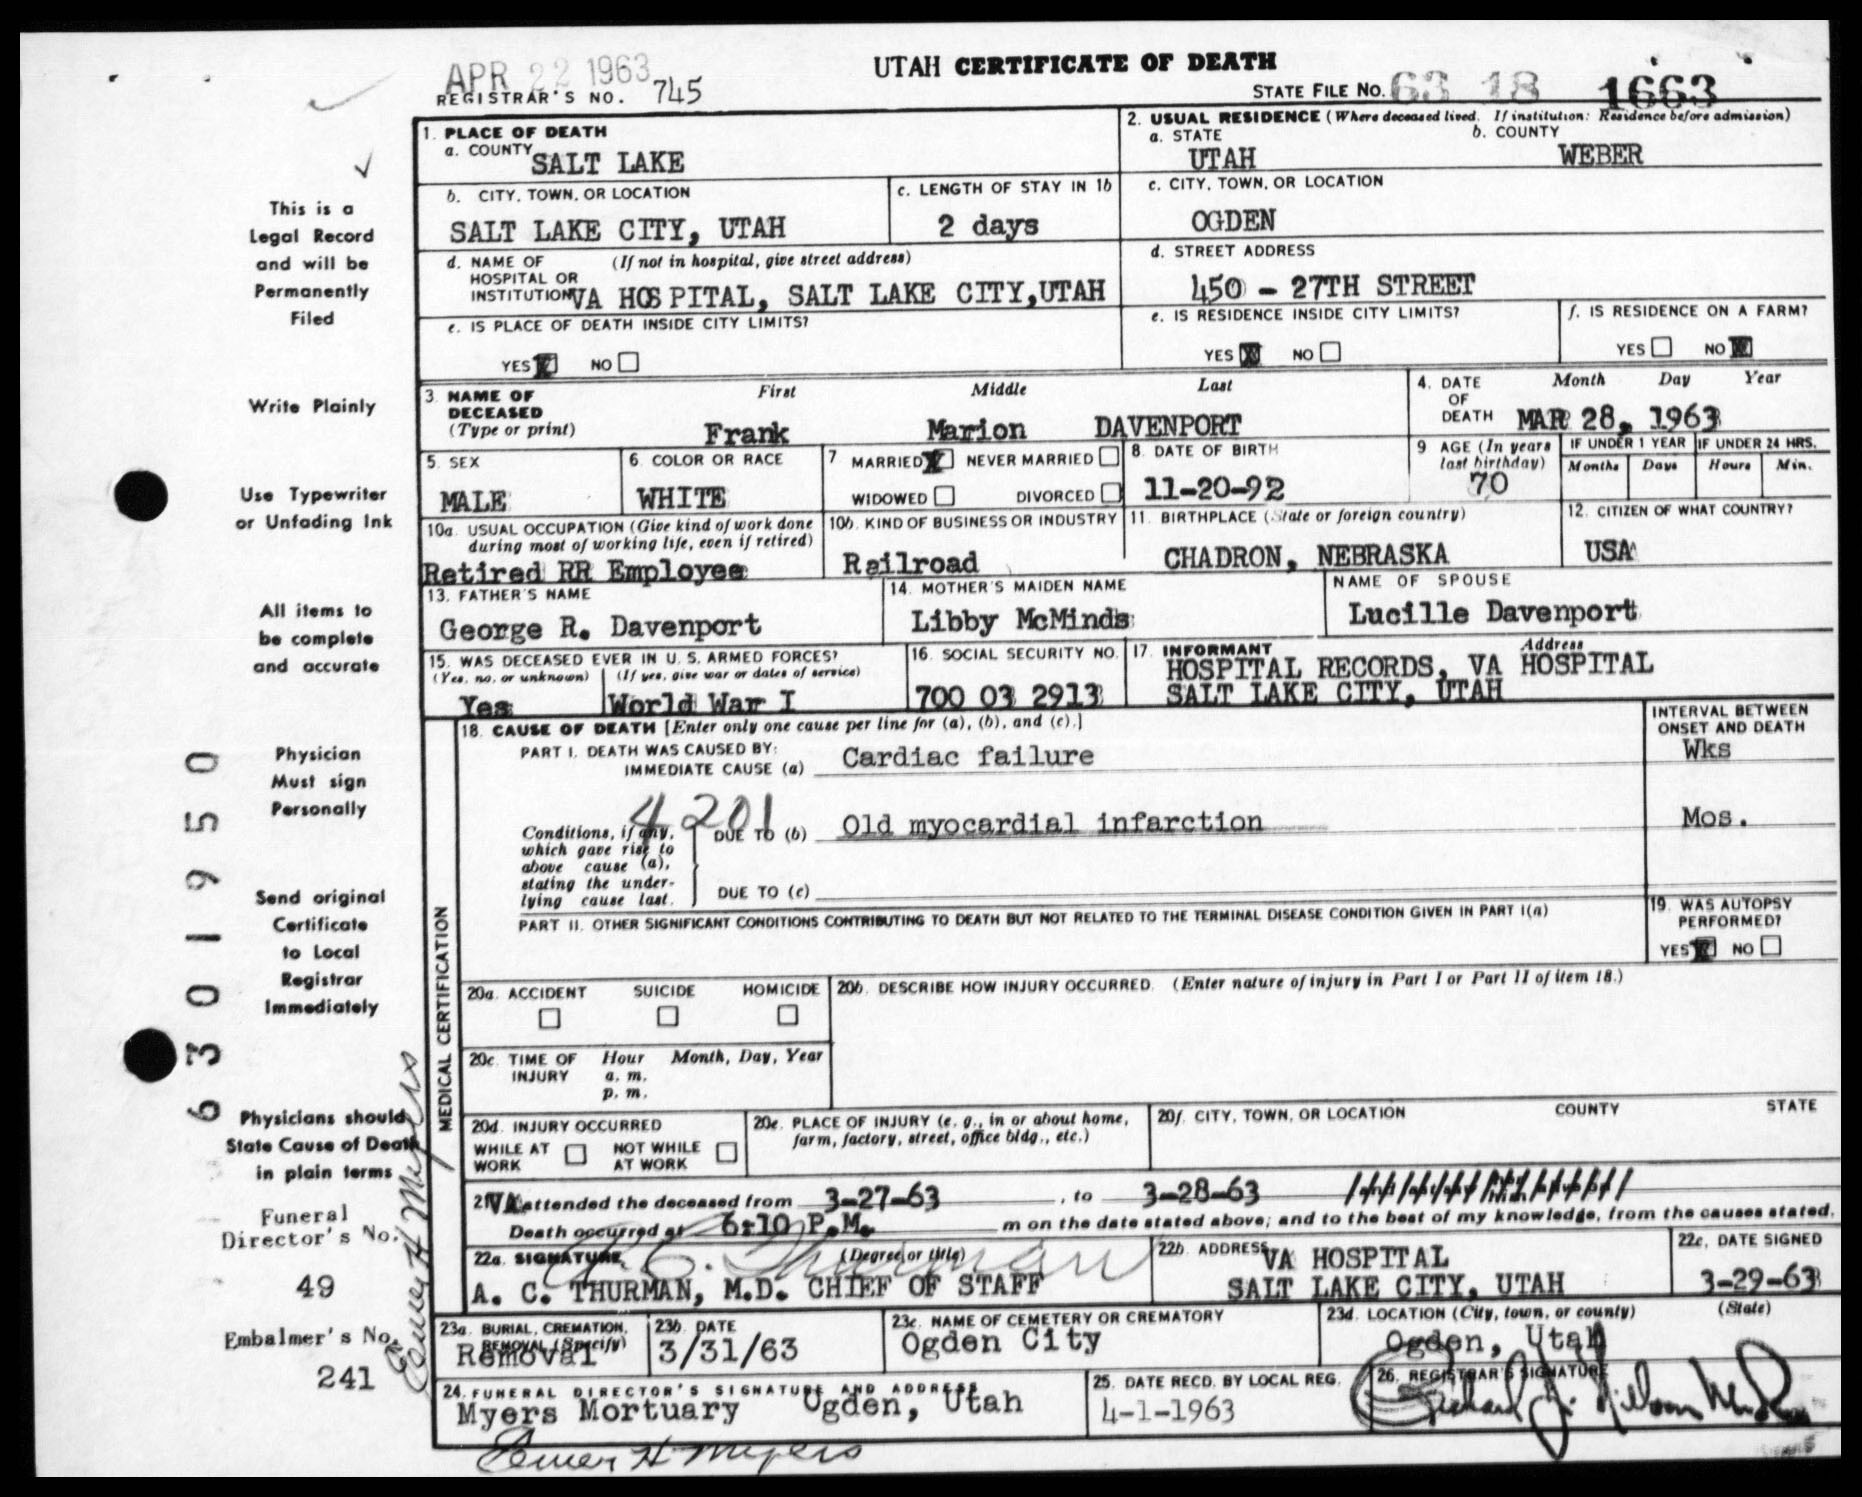 APR 22 1963
UTAH CERTIFICATE OF DEATH
REGISTRAR'S NO. 745
STATE FILE NO. 63 18 1663
1. PLACE OF DEATH
a. COUNTY SALT LAKE
2. USUAL RESIDENCE (Where deceased lived. If institution: Residence before admission)
a. STATE UTAH b. COUNTY WEBER
b. CITY, TOWN, OR LOCATION SALT LAKE CITY, UTAH
c. LENGTH OF STAY IN 1b 2 days
c. CITY, TOWN, OR LOCATION OGDEN
d. NAME OF HOSPITAL OR INSTITUTION (If not in hospital, give street address) VA HOSPITAL, SALT LAKE CITY, UTAH
d. STREET ADDRESS 450 - 27TH STREET
e. IS PLACE OF DEATH INSIDE CITY LIMITS?
YES X NO
e. IS RESIDENCE INSIDE CITY LIMITS?
YES X NO
f. IS RESIDENCE ON A FARM?
YES NO X
3. NAME OF DECEASED (Type or print)
First Middle Last
Frank Marion DAVENPORT
4. DATE OF DEATH Month Day Year
MAR 28, 1963
5. SEX MALE
6. COLOR OR RACE WHITE
7 MARRIED X NEVER MARRIED
WIDOWED DIVORCED
8. DATE OF BIRTH 11-20-92
9 AGE (In years last birthday) 70
IF UNDER 1 YEAR Months Days
IF UNDER 24 HRS. Hours Min.
10a. USUAL OCCUPATION (Give kind of work done during most of working life, even if retired)
Retired RR Employee
10b. KIND OF BUSINESS OR INDUSTRY
Railroad
11. BIRTHPLACE (State or foreign country)
CHADRON, NEBRASKA
12. CITIZEN OF WHAT COUNTRY?
USA
13. FATHER'S NAME
George R. Davenport
14. MOTHER'S MAIDEN NAME
Libby McMinds
NAME OF SPOUSE
Lucille Davenport
15. WAS DECEASED EVER IN U. S. ARMED FORCES?
(Yes, no, or unknown) (If yes, give war or dates of service)
Yes World War I
16. SOCIAL SECURITY NO.
700 03 2913
17. INFORMANT Address
HOSPITAL RECORDS, VA HOSPITAL
SALT LAKE CITY, UTAH
MEDICAL CERTIFICATION
18. CAUSE OF DEATH [Enter only one cause per line for (a), (b), and (c).]
INTERVAL BETWEEN ONSET AND DEATH
PART I. DEATH WAS CAUSED BY:
IMMEDIATE CAUSE (a) Cardiac failure Wks
4201
Conditions, if any, which gave rise to above cause (a), stating the underlying cause last.
DUE TO (b) Old myocardial infarction Mos.
DUE TO (c)
PART II. OTHER SIGNIFICANT CONDITIONS CONTRIBUTING TO DEATH BUT NOT RELATED TO THE TERMINAL DISEASE CONDITION GIVEN IN PART I(a)
19. WAS AUTOPSY PERFORMED?
YES X NO
20a. ACCIDENT SUICIDE HOMICIDE
20b. DESCRIBE HOW INJURY OCCURRED. (Enter nature of injury in Part I or Part II of item 18.)
20c. TIME OF INJURY Hour Month, Day, Year
a. m.
p. m.
20d. INJURY OCCURRED
WHILE AT WORK NOT WHILE AT WORK
20e. PLACE OF INJURY (e. g., in or about home, farm, factory, street, office bldg., etc.)
20f. CITY, TOWN, OR LOCATION COUNTY STATE
21. VA attended the deceased from 3-27-63, to 3-28-63
Death occurred at 6:10 P.M. m on the date stated above; and to the best of my knowledge, from the causes stated.
22a. SIGNATURE (Degree or title)
A C Thurman
A. C. THURMAN, M.D. CHIEF OF STAFF
22b. ADDRESS VA HOSPITAL
SALT LAKE CITY, UTAH
22c. DATE SIGNED
3-29-63
23a. BURIAL, CREMATION, REMOVAL (Specify)
Removal
23b. DATE
3/31/63
23c. NAME OF CEMETERY OR CREMATORY
Ogden City
23d. LOCATION (City, town, or county) (State)
Ogden, Utah
24. FUNERAL DIRECTOR'S SIGNATURE AND ADDRESS
Myers Mortuary Ogden, Utah
Elmer H Myers
25. DATE RECD. BY LOCAL REG.
4-1-1963
26. REGISTRAR'S SIGNATURE
This is a
Legal Record
and will be
Permanently
Filed
Write Plainly
Use Typewriter
or Unfading Ink
All items to
be complete
and accurate
Physician
Must sign
Personally
Send original
Certificate
to Local
Registrar
Immediately
Physicians should
State Cause of Death
in plain terms
Funeral
Director's No.
49
Embalmer's No.
241
Elmer H Myers
6301950